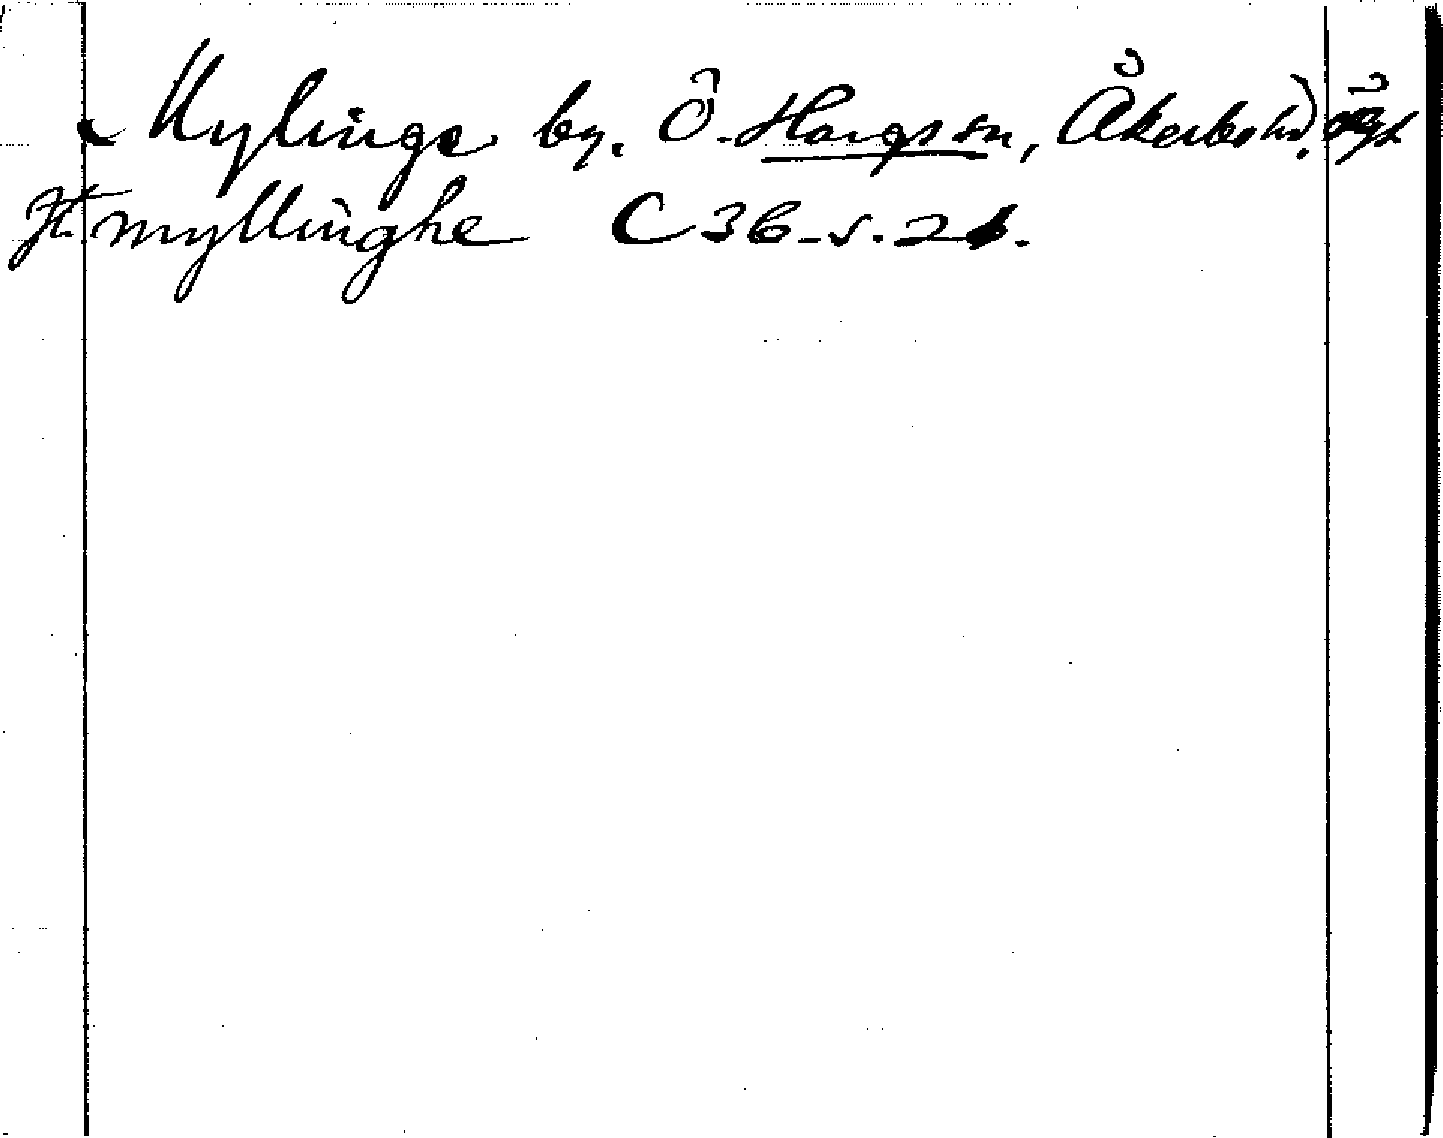 Mylinge by. Ö. Hargs sn, Åkerbo hd, Ögl
Jt. myllinghe C 36 s. 21.